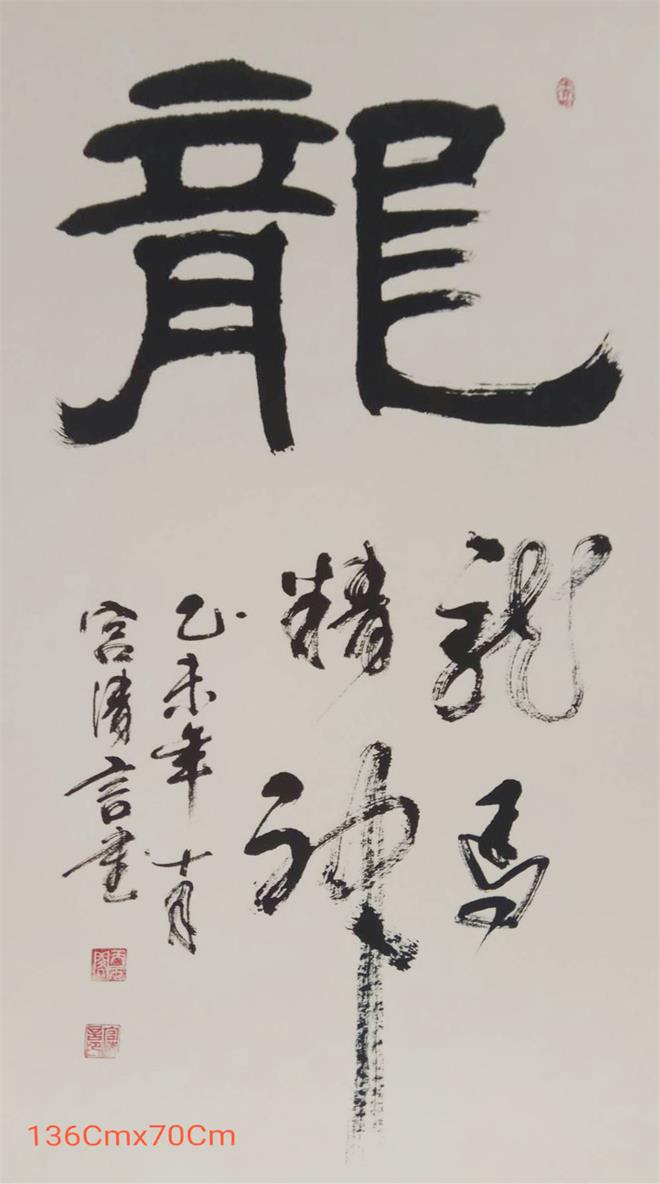 龍
龍馬
精神
乙未年十月
宫清言書
136Cmx70Cm